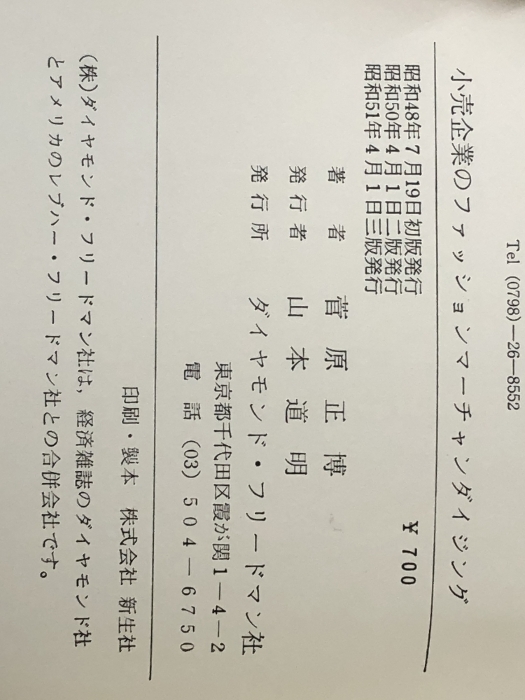 Tel (0798)―26―8552
小売企業のファッションマーチャンダイジング
¥700
昭和48年7月19日初版発行
昭和50年4月1日二版発行
昭和51年4月1日三版発行
著者 菅原正博
発行者 山本道明
発行所 ダイヤモンド・フリードマン社
東京都千代田区霞が関1―4―2
電話 (03) 504―6750
印刷・製本 株式会社 新生社
(株)ダイヤモンド・フリードマン社は，経済雑誌のダイヤモンド社
とアメリカのレブハー・フリードマン社との合併会社です。